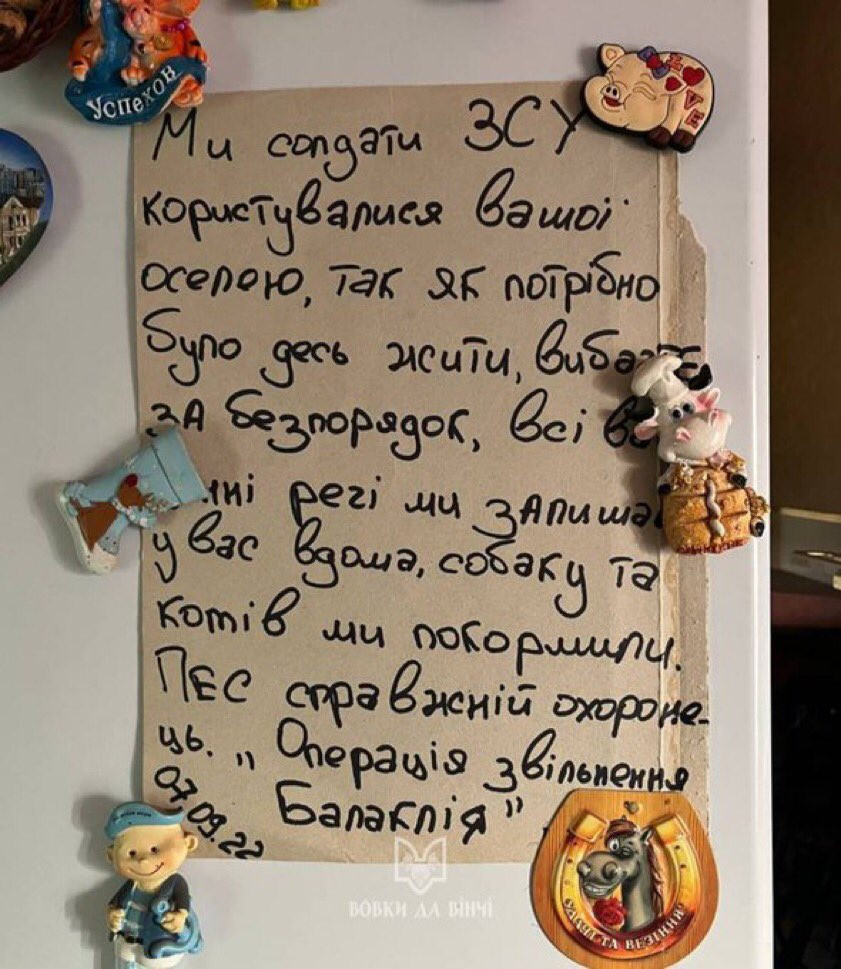 Успехон
LOVE
Ми солдати ЗСУ
користувалися вашої
оселею, так як потрібно
було десь жити, вибачте
за безпорядок, всі
речі ми
у вас вдома, собаку та
котів ми покормили.
Пес справжній охороне-
ць. „Операція звільнення
Балаклія"
07.09.22
ВОВКИ ДА ВІНЧІ
УДАЧІ ТА ВЕЗІННЯ